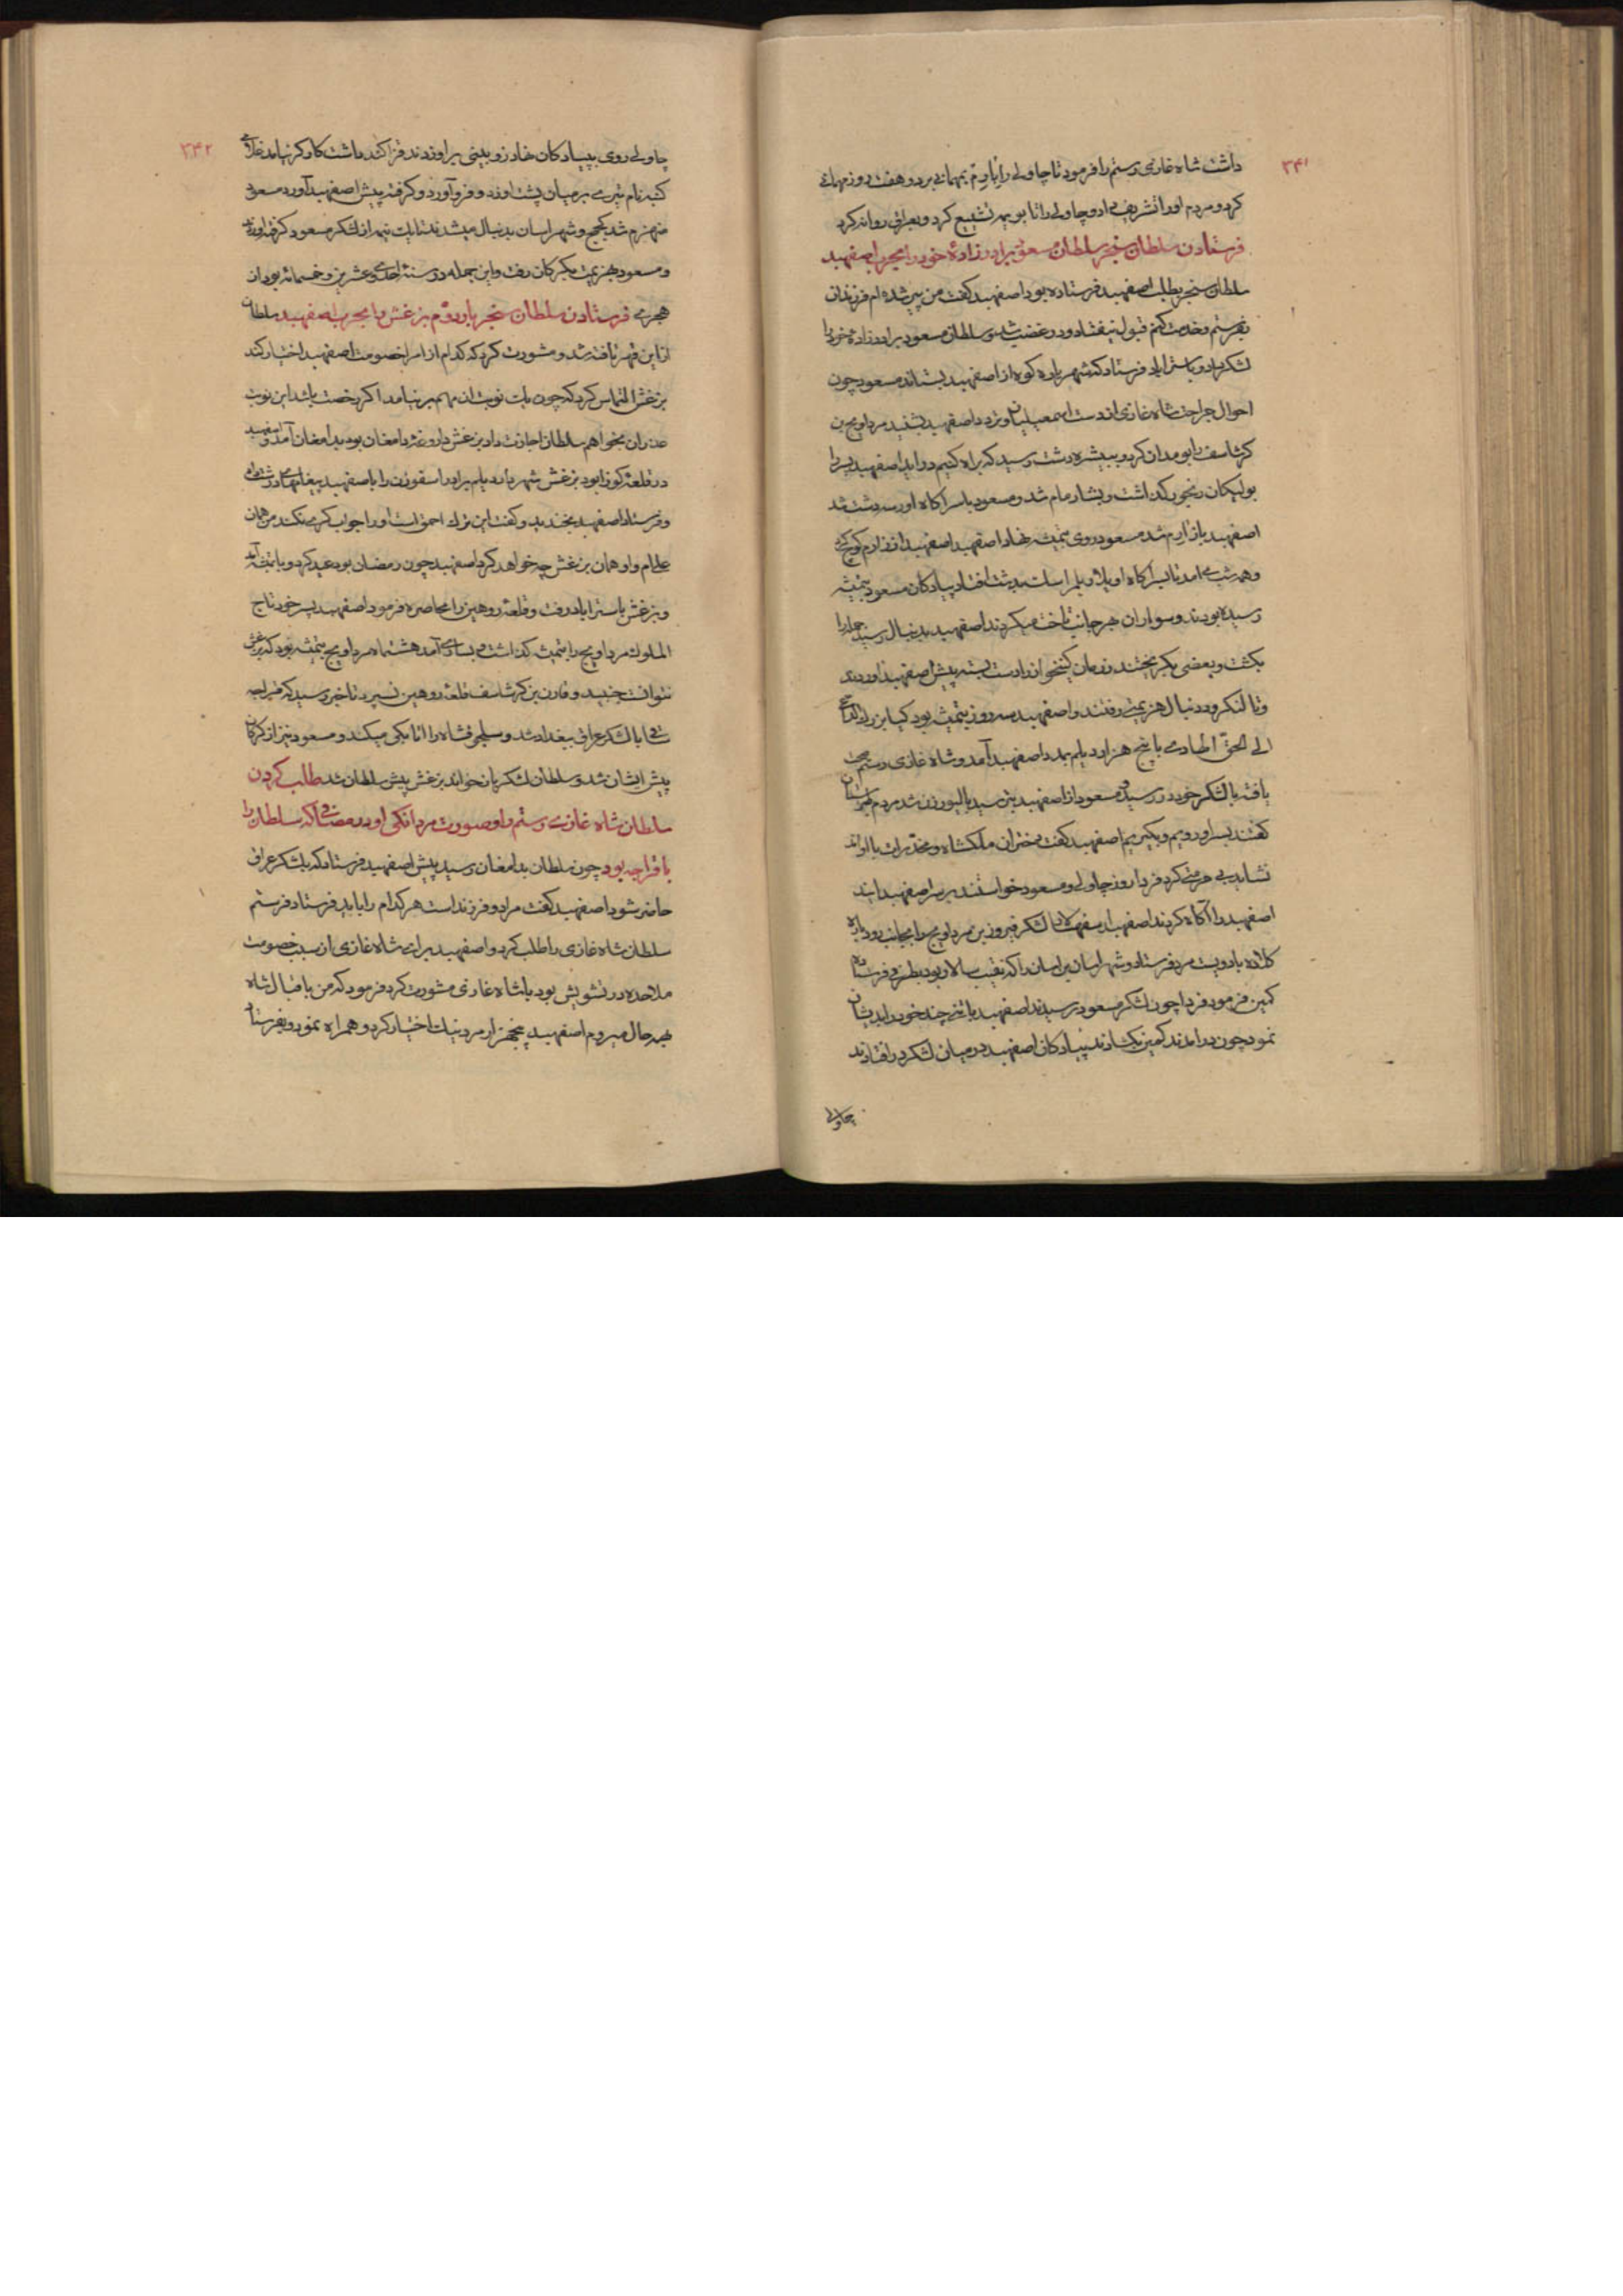 ۳۴۱
داشت شاه غازی رستم را فرمود تا چاولی را بارم بمهمانی برد و هفت روز مهمانی
کرد و مردم او را تشریف داد و چاولی را تا بویمه تشییع کرد و بعراق روانه کرد
فرستادن سلطان سنجر سلطان مسعود برادرزاده خود را بحرب اصفهبد
سلطان سنجر بطلب اصفهبد فرستاده بود اصفهبد گفت من پیر شده ام فرزندان
بفرستم و خدمت کنم قبول نیفتاد و در غضب شد و سلطان مسعود برادرزاده خود را
لشکر داد و باستراباد فرستاد که شهریاره کوه از اصفهبد بستاند مسعود چون
احوال جراحت شاه غازی از دست اسمعیلیان و درد اصفهبد بشنید مرداویج بن
کرشاسف را بومدان کرد و ببیشه دشت رسید که براه کنیم دراید اصفهبد پسر را
بولیکان رنجور گذاشت و بشارمام شد و مسعود باسراکاه اورسه دشت شد
اصفهبد باز ارم شد مسعود روی بتمیشه نهاد اصفهبد از ارم کوچ کرد
و همه شب می امد تا بسراکاه اویلاویلمر است بدشت افتاد پیادکان مسعود بتمیشه
رسیده بودند و سواران هر جانب تاخت میکردند اصفهبد بدنبال رسید جمله را
بکشت و بعضی بگریختند دست بسته پیش اصفهبد آوردند
و تا لنکرود دنبال هزیمتی رفتند و اصفهبد سه روز بتمیشه بود کیا بزرک الداعی
الی الحق الهادی با پنج هزار دیلم بمدد اصفهبد آمد و شاه غازی رستم صحت
یافته با لشکر خود در رسید مسعود از اصفهبد بترسید بالیورزن شد مردم طبرستان
گفتند بسر او رویم و بگیریم اصفهبد گفت دختران ملکشاه و مخدرات با او اند
نشاید بی حرمتی کرد فردا روز چاولی و مسعود خواستند بر سر اصفهبد ایند
اصفهبد را آگاه کردند اصفهبد لشکر فیروز بن مرداویج را بجانب رودباره
کلاده با دویست مرد فرستاد و شهراسان را که نقیب سالار بود بطرفی فرستادم
کمین فرمود فردا چون لشکر مسعود برسیدند اصفهبد با تنی چند خود را بدیشان
نمود چون درامدند کمین بگشادند پیادکان اصفهبد در میان لشکر در افتادند
چاولی
۳۴۲
چاولی روی بپیادکان نهاد زوبینی بر او زدند قزاکند داشت کارگر نیامد غلامی
کنبد نام تیری بر میان پشت او زد و فرو آورد و گرفته پیش اصفهبد آورد مسعود
منهزم شد بکجج و شهراسان بدنبال میشدند تا یک نیمه از لشکر مسعود گرفته اوردند
و مسعود بهزیمت بکرکان رفت و این جمله در سنهٔ احدی و عشرین و خمسمائه بود از
هجری فرستادن سلطان سنجر بار دوم برغش را بحرب اصفهبد سلطان
از این قهر تافته شد و مشورت کرد که کدام از امرا خصومت اصفهبد اختیار کند
برغش التماس کرد که چون یک نوبت آن مهم برنیامد اگر رخصت باشد این نوبت
عذر آن بخواهم سلطان اجازت داد برغش داروغهٔ دامغان بود بدامغان آمد و اصفهبد
در قلعهٔ کوزا بود برغش شهریار دیلم برادر اسقوزن را باصفهبد پیغامهای درشت داد
و فرستاد اصفهبد بخندید و گفت این ترک احمق است او را جواب کری نکند من همان
علی ام و او همان برغش چه خواهد کرد اصفهبد چون رمضان بود عید کرد و با تمیشه آمد
و برغش باستراباد رفت و قلعهٔ روهین را محاصره فرمود اصفهبد پسر خود تاج
الملوک مرداویج را بتمیشه گذاشت و بساری آمد هشت ماه مرداویج بتمیشه بود که برغش
نتوانست جنبید و قارن بن کرشاسف قلعهٔ روهین نسپرد تا خبر رسید که قراجه
ساقی با لشکر عراق ببغداد شد و سلجوقشاه را اتابکی میکند و مسعود نیز از کرکان
پیش ایشان شد و سلطان لشکریان خواند برغش پیش سلطان شد طلب کردن
سلطان شاه غازی رستم را و صورت مردانگی او در مصافی که سلطان را
با قراجه بود چون سلطان بدامغان رسید پیش اصفهبد فرستاد که بلشکر عراق
حاضر شود اصفهبد گفت مرا دو فرزند است هر کدام را باید فرستاد فرستم
سلطان شاه غازی را طلب کرد و اصفهبد برای شاه غازی از سبب خصومت
ملاحده در تشویش بود با شاه غازی مشورت کرد فرمود که من باقبال شاه
بهر حال میروم اصفهبد پنجهزار مرد نیک اختیار کرد و همراه نمود و بفرستاد